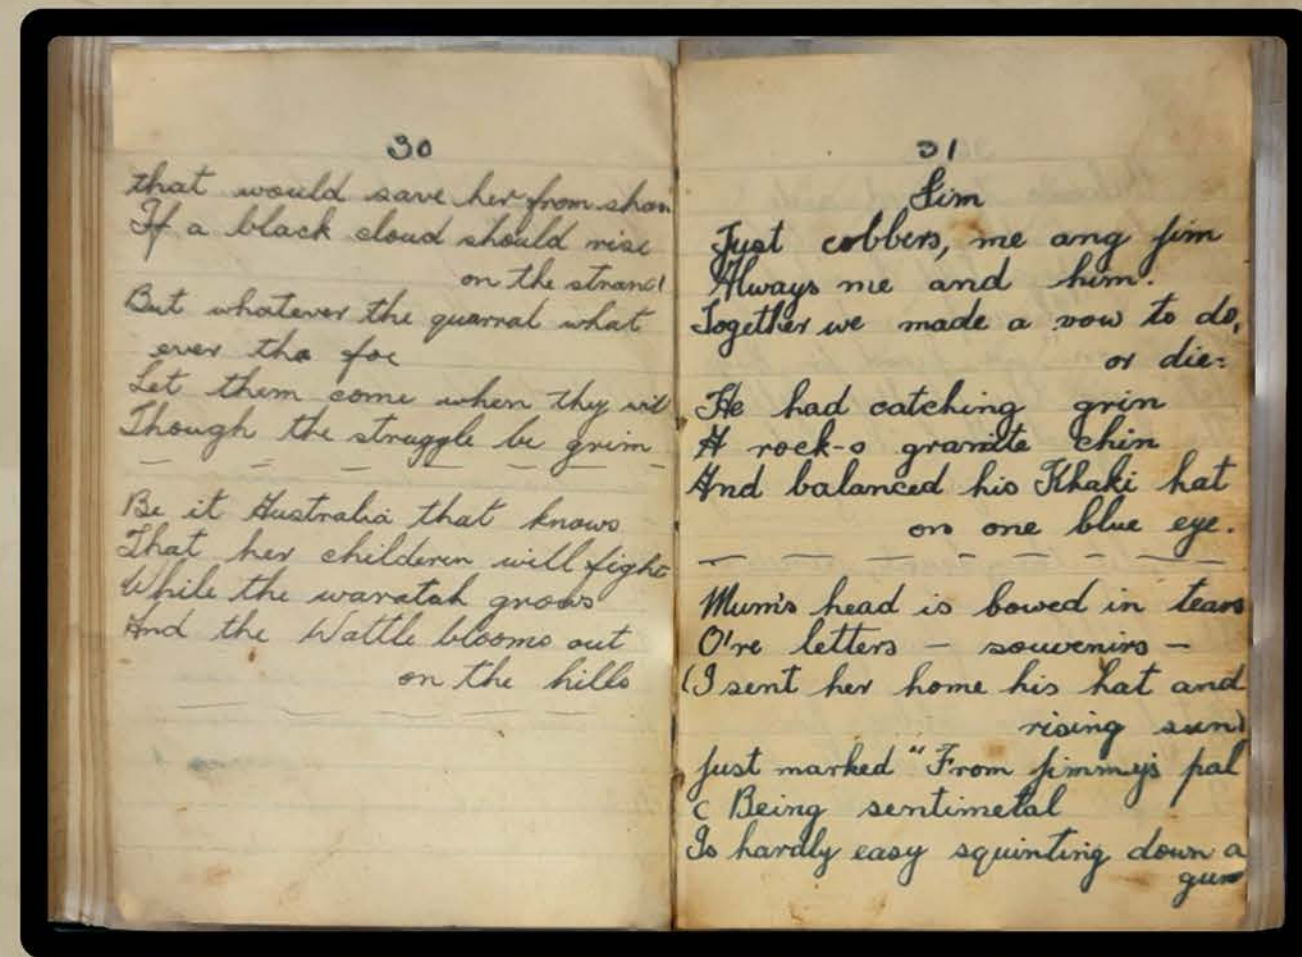 30
that would save her from sham
If a black cloud should rise
on the strand
But whatever the quarral what
ever the foe
Let them come when they wil
Though the struggle be grim
Be it Australia that knows
That her childeren will fight
While the waratah grows
And the Wattle blooms out
on the hills
31
Jim
Just cobbers, me ang Jim
Always me and him.
Together we made a vow to do,
or die:
He had catching grin
A rock-o granite chin
And balanced his Khaki hat
on one blue eye.
Mum's head is bowed in tears
O're letters - souvenirs -
(I sent her home his hat and
rising sun)
Just marked "From Jimmy's pal
( Being sentimetal
Is hardly easy squinting down a
gun